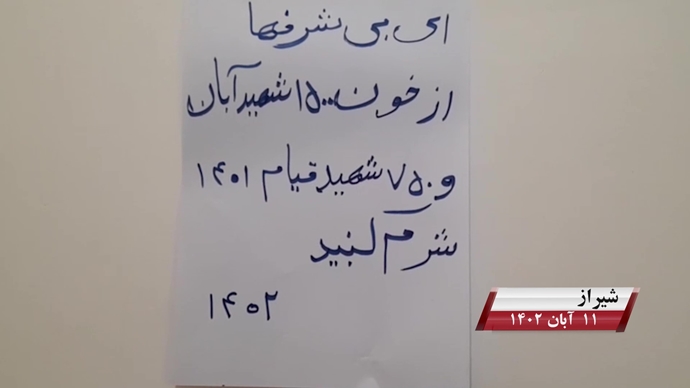 ای بی شرفها
از خون ۱۵۰۰ شهید آبان
و ۷۵۰ شهید قیام ۱۴۰۱
شرم کنید
۱۴۰۲
شیراز
۱۱ آبان ۱۴۰۲